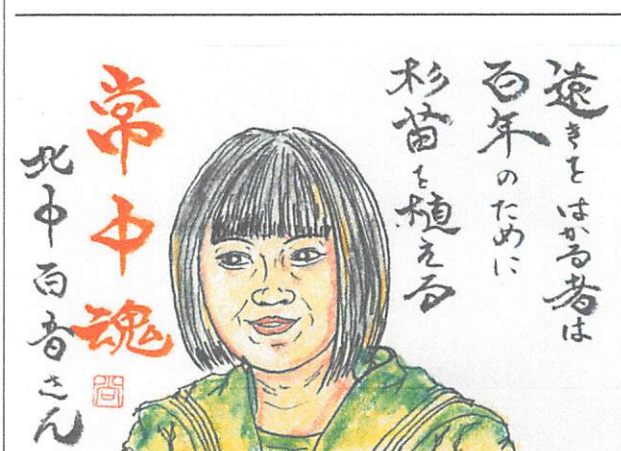 遠きをはかる者は
百年のために
杉苗を植える
常中魂
北中百音さん
尚